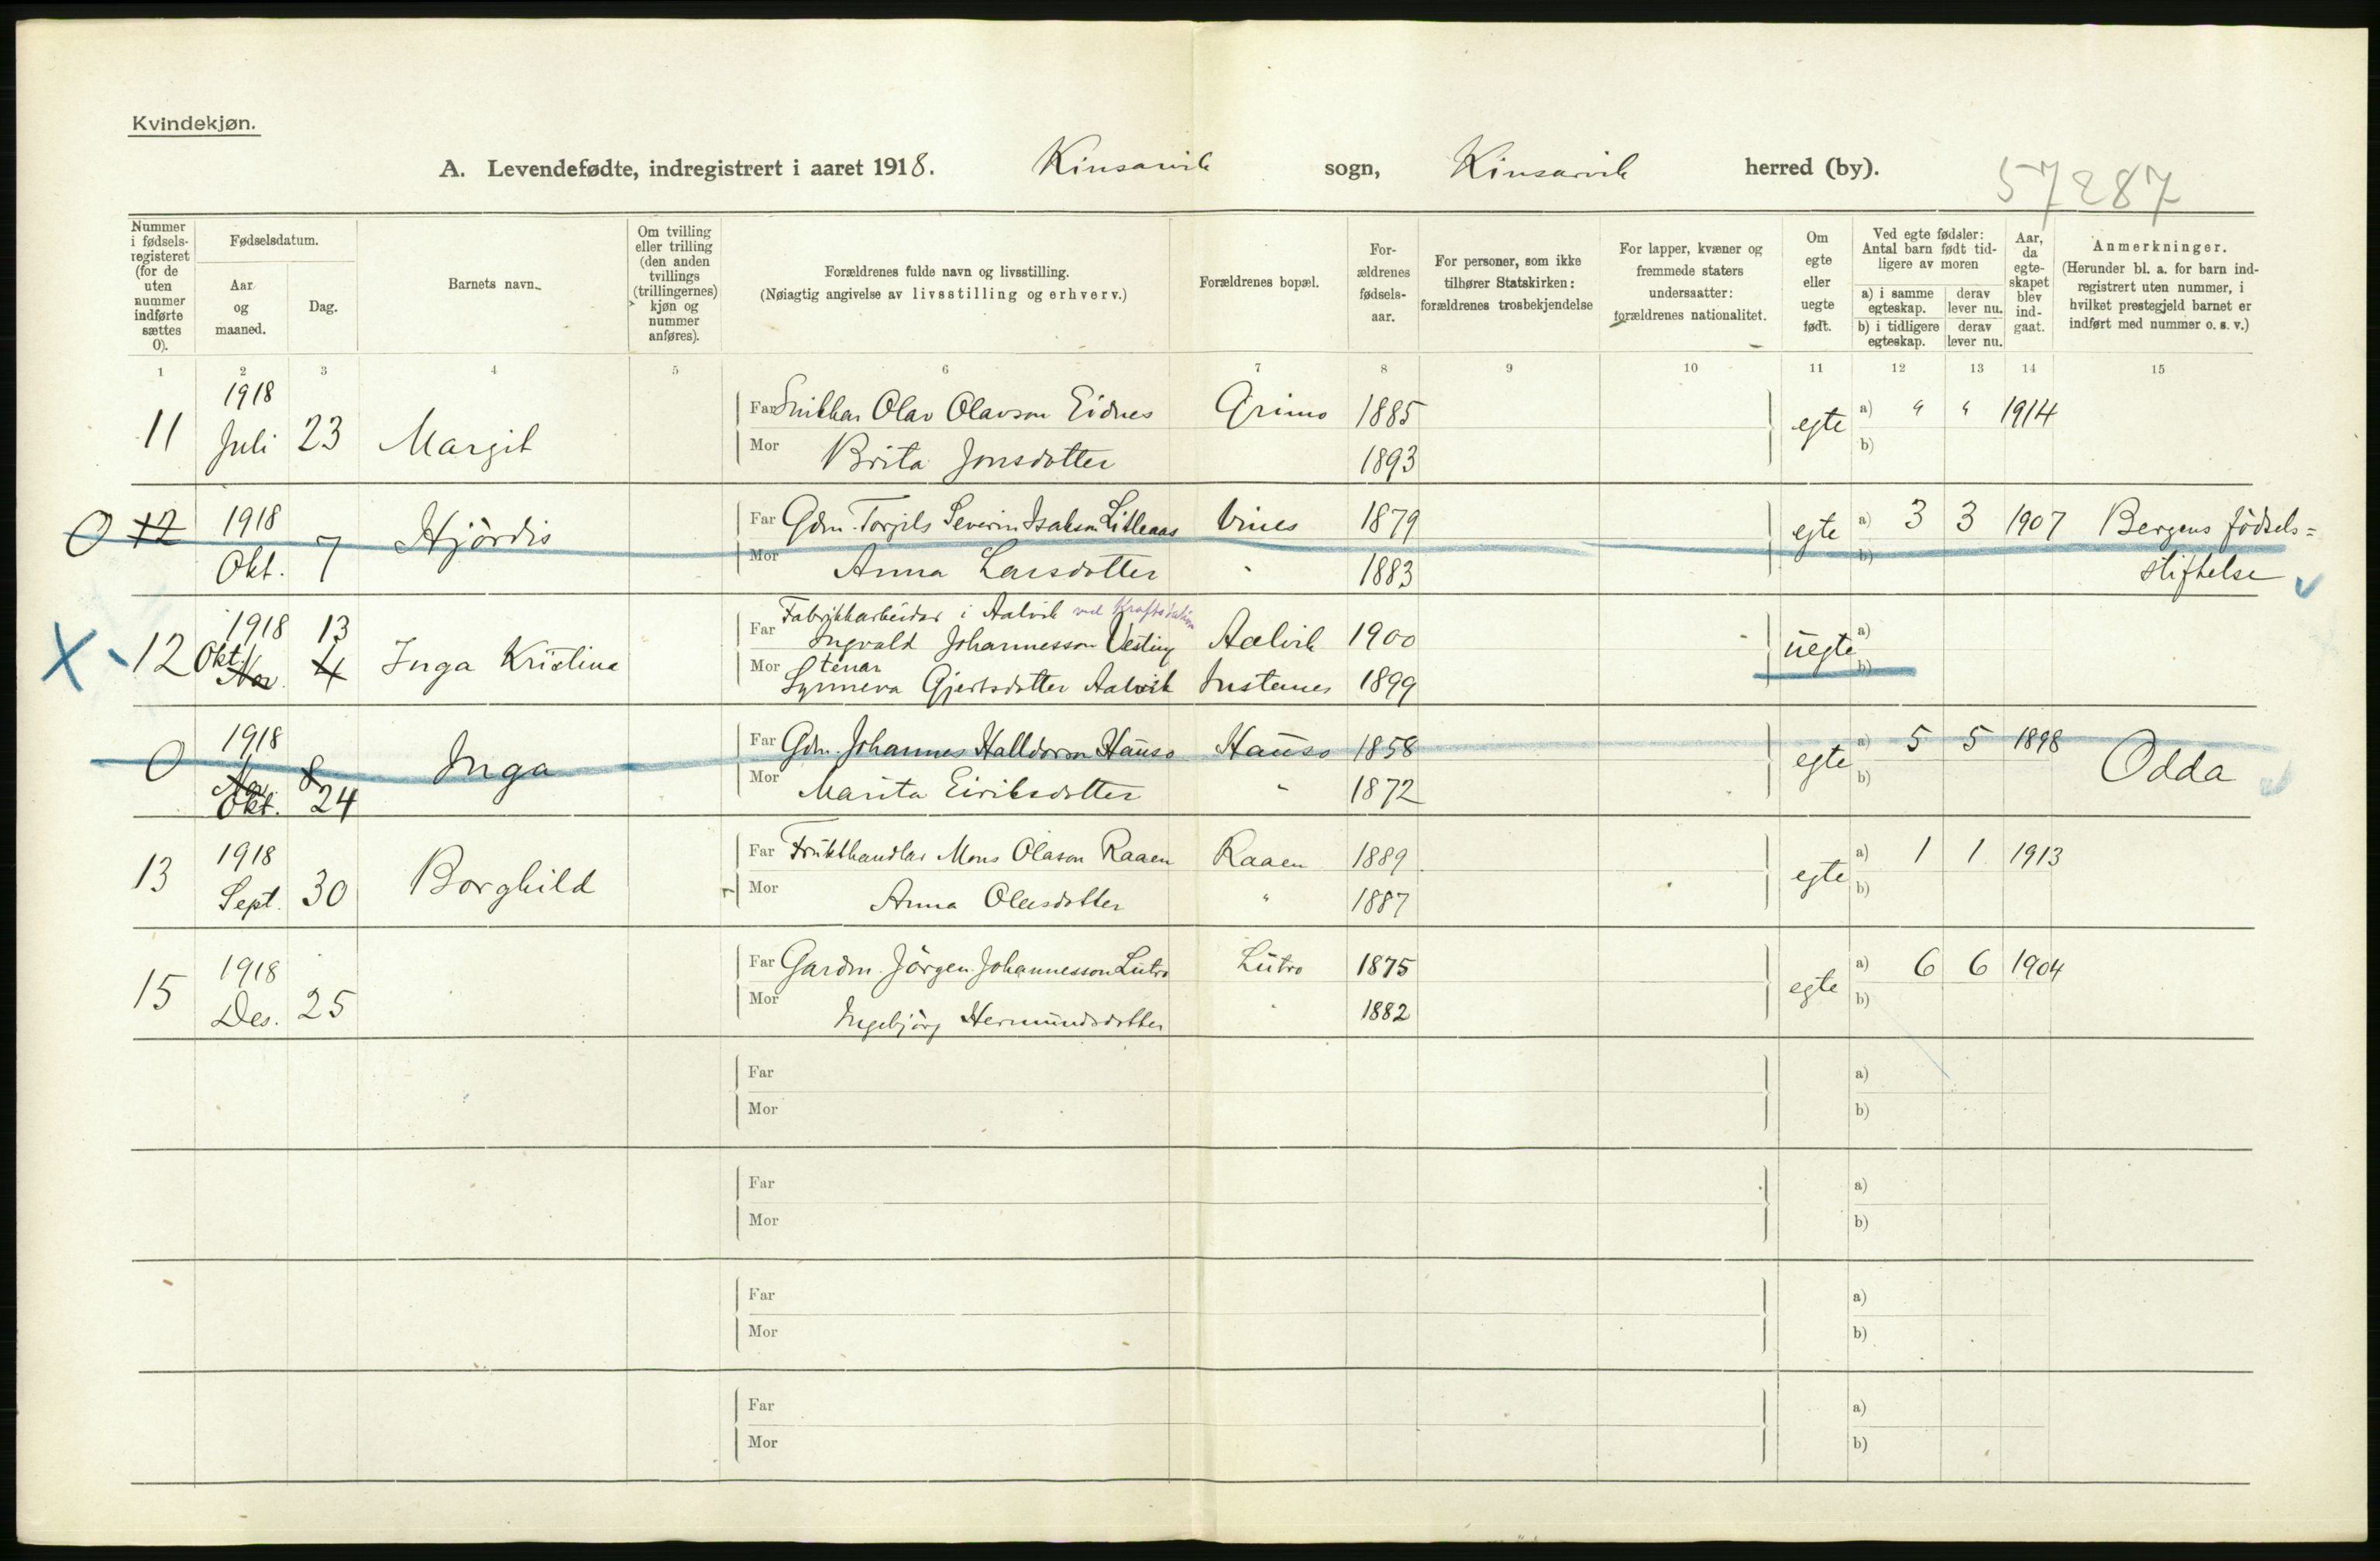 Kvindekjøn.
A. Levendefødte, indregistrert i aaret 1918. Kinsarvik sogn, Kinsarvik herred (by).
57287
Nummer i fødsels-registeret (for de uten nummer indførte sættes 0).
Fødselsdatum.
Aar og maaned.
Dag.
Barnets navn.
Om tvilling eller trilling (den anden tvillings (trillingernes) kjøn og nummer anføres).
Forældrenes fulde navn og livsstilling.
(Nøiagtig angivelse av livsstilling og erhverv.)
Forældrenes bopæl.
For-ældrenes fødsels-aar.
For personer, som ikke tilhører Statskirken: forældrenes trosbekjendelse
For lapper, kvæner og fremmede staters undersaatter: forældrenes nationalitet.
Om egte eller uegte født.
Ved egte fødsler: Antal barn født tid-ligere av moren
a) i samme egteskap. derav lever nu.
b) i tidligere egteskap. derav lever nu.
Aar, da egte-skapet blev ind-gaat.
Anmerkninger.
(Herunder bl. a. for barn ind-registrert uten nummer, i hvilket prestegjeld barnet er indført med nummer o. s. v.)
1 2 3 4 5 6 7 8 9 10 11 12 13 14 15
11 1918 Juli 23 Margit
Far Snikkar Olav Olavson Eidnes Grimo 1885 egte a) " " 1914
Mor Brita Jonsdotter 1893 b)
0 12 1918 Okt. 7 Hjördis
Far Gdm. Torgils Severin Isakson Litleaas Vines 1879 egte a) 3 3 1907 Bergens födsels=
Mor Anna Larsdotter " 1883 b) stiftelse
X 12 1918 Okt. Nov. 13 4 Inga Kristina
Fabrikkarbeidar i Aalvik ved Kraftstation
Far Ingvald Johannesson Vesting Aalvik 1900 uegte a)
tenar
Mor Synneva Gjertsdotter Aalvik Instenes 1899 b)
0 1918 Nov. Okt. 8 24 Inga
Far Gdm. Johannes Halldorson Hauso Hauso 1858 egte a) 5 5 1898 Odda
Mor Marita Eiriksdotter " 1872 b)
13 1918 Sept. 30 Borghild
Far Frukthandlar Mons Olason Raaen Raaen 1889 egte a) 1 1 1913
Mor Anna Olasdotter " 1887 b)
15 1918 Des. 25
Far Gardm. Jörgen Johannesson Lutro Lutro 1875 egte a) 6 6 1904
Mor Ingebjörg Hermundsdotter " 1882 b)
Far a)
Mor b)
Far a)
Mor b)
Far a)
Mor b)
Far a)
Mor b)